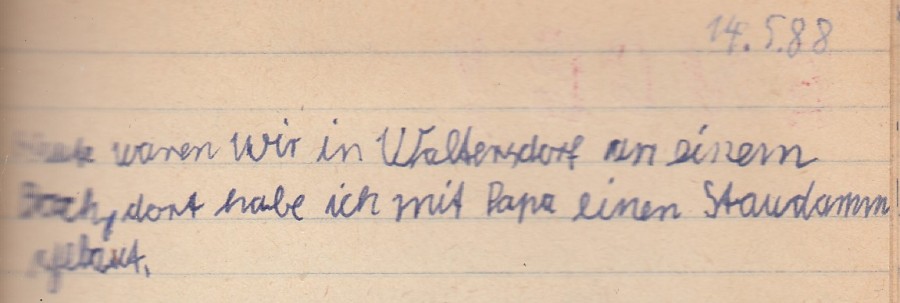 14.5.88
Heute waren wir in Waltersdorf an einem
Bach, dort habe ich mit Papa einen Staudamm
gebaut.